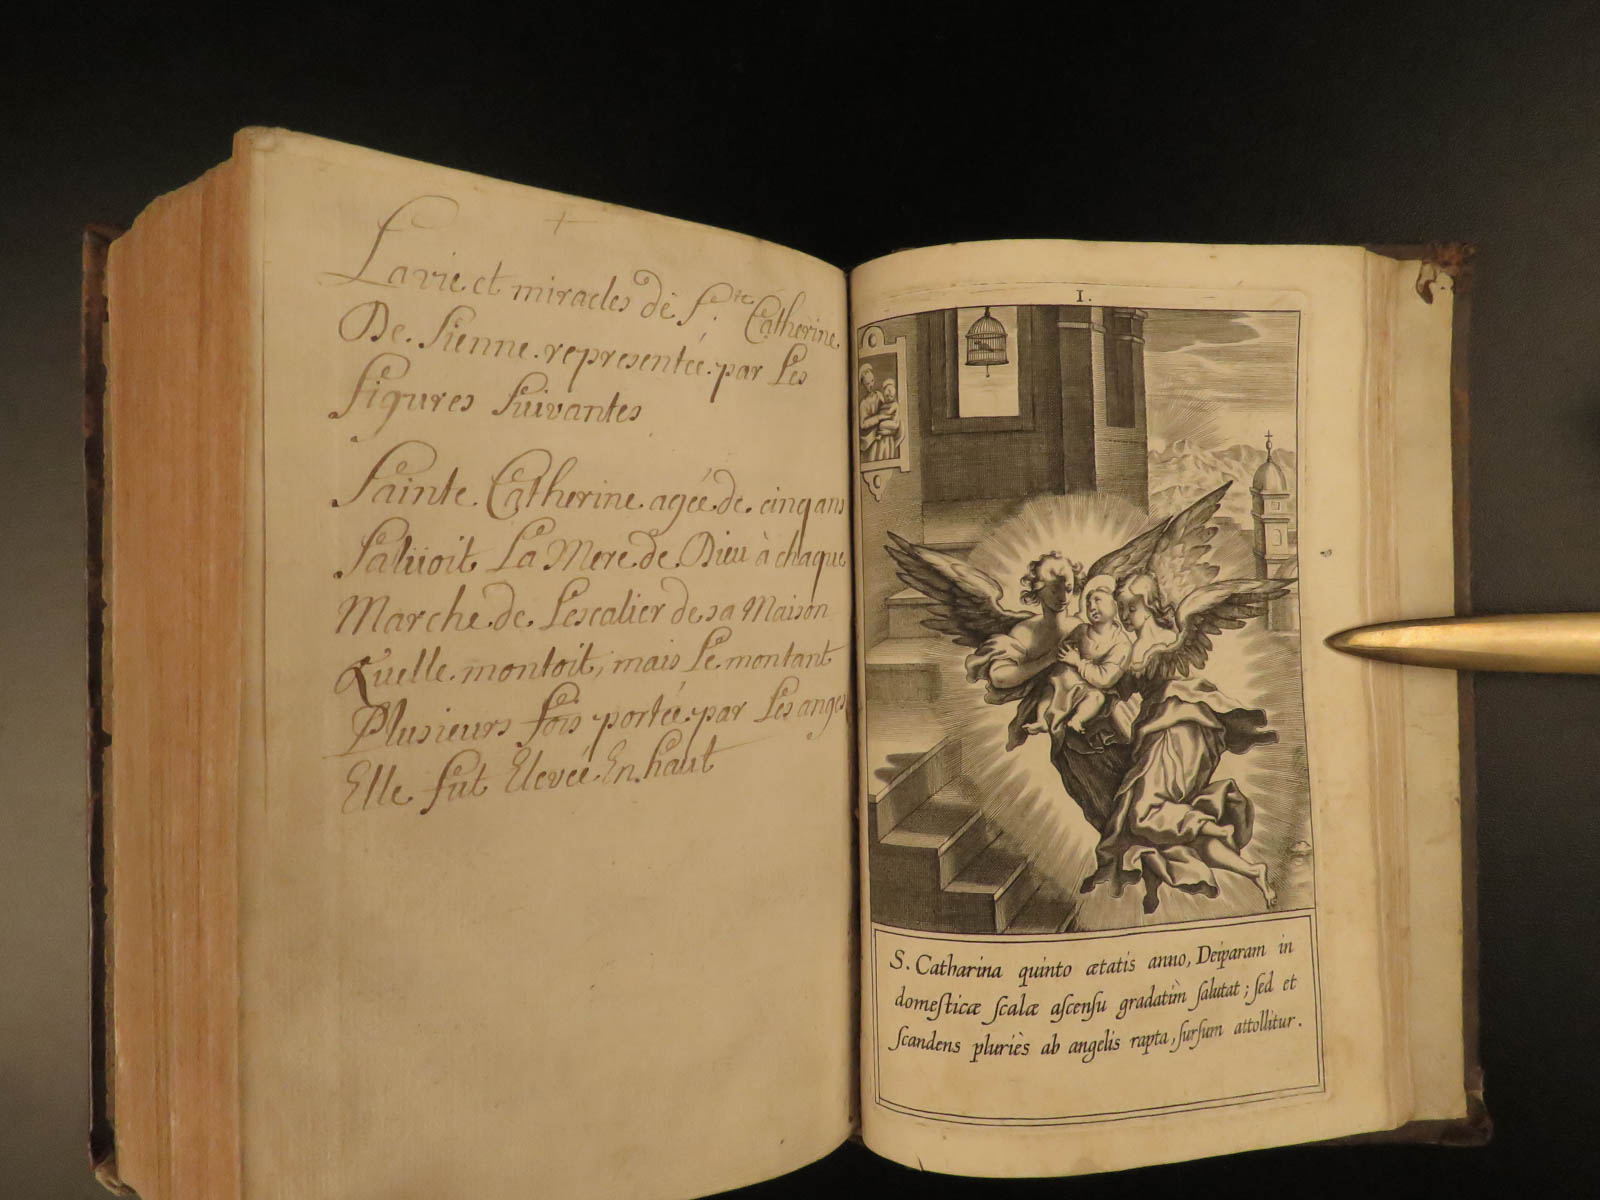 La vie et miracles de S.te Catherine
De Sienne representée par Les
figures suivantes
Sainte Catherine agée de cinq ans
saluoit La Mere de Dieu à chaque
Marche de Lescalier de sa Maison
Quelle montoit, mais Le montant
Plusieurs fois portée par Les anges
Elle fut Elevée En haut
I.
S. Catharina quinto ætatis anno, Deiparam in
domeſticæ ſcalæ aſcenſu gradatim ſalutat; ſed et
ſcandens pluriès ab angelis rapta, ſurſum attollitur.